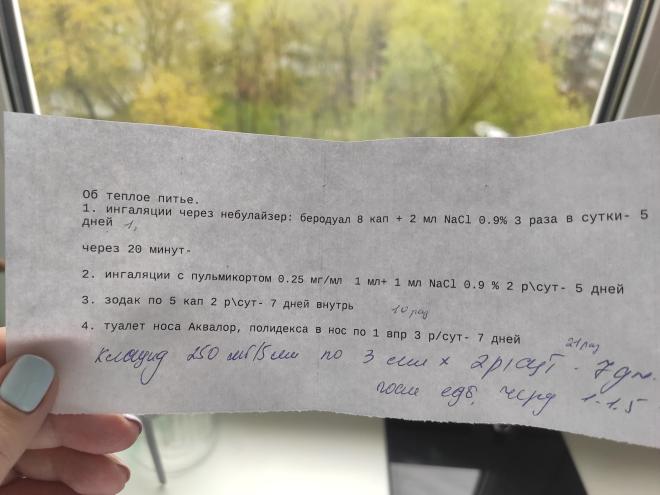 Об теплое питье.
1. ингаляции через небулайзер: беродуал 8 кап + 2 мл NaCl 0.9% 3 раза в сутки- 5
дней
через 20 минут-
2. ингаляции с пульмикортом 0.25 мг/мл 1 мл+ 1 мл NaCl 0.9 % 2 р\сут- 5 дней
3. зодак по 5 кап 2 р\сут- 7 дней внутрь
4. туалет носа Аквалор, полидекса в нос по 1 впр 3 р/сут- 7 дней
21 раз
Клацид 250 мг/5 мл по 3 мл х 2 р/сут - 7 дн.
после еды, через 1-1.5